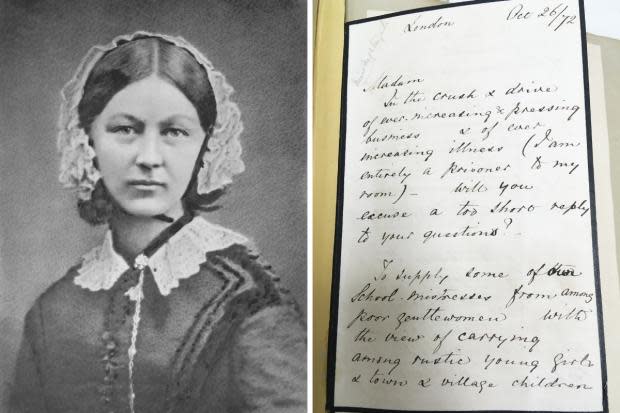 London Oct 26/72
Madam
In the crush & drive
of ever-increasing & pressing
business & of ever
increasing illness (I am
entirely a prisoner to my
room) – will you
excuse a too short reply
to your questions? –
To supply some of
School-mistresses from among
poor gentlewomen with
the view of carrying
among rustic young girls
& town & village children